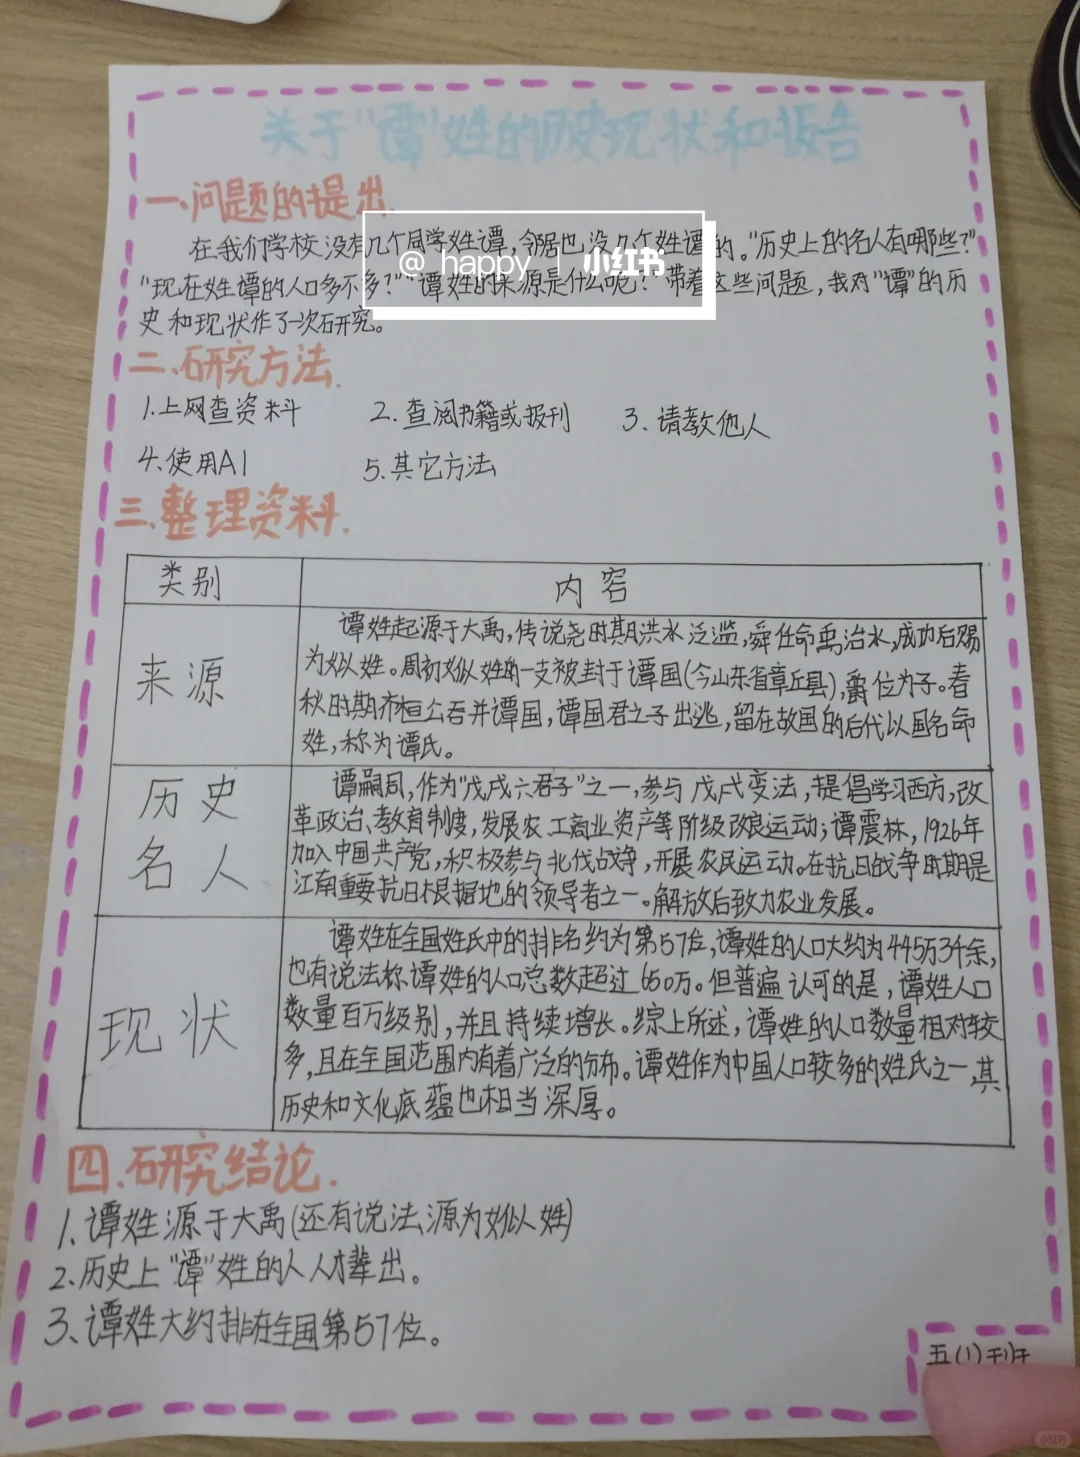 关于"谭"姓的历史现状和报告
一、问题的提出.
在我们学校没有几个同学姓谭,邻居也没几个姓谭的。"历史上的名人有哪些?"
"现在姓谭的人口多不多?""谭姓的来源是什么呢?"带着这些问题,我对"谭"的历
史和现状作了一次研究。
@ happy 小红书
二、研究方法.
1.上网查资料 2.查阅书籍或报刊 3.请教他人
4.使用AI 5.其它方法
三、整理资料.
类别 内容
来源
谭姓起源于大禹,传说尧时期洪水泛滥,舜任命禹治水,成功后赐
为姒姓。周初姒姓的一支被封于谭国(今山东省章丘县),爵位为子。春
秋时期齐桓公吞并谭国,谭国君之子出逃,留在故国的后代以国名命
姓,称为谭氏。
历史
名人
谭嗣同,作为"戊戌六君子"之一,参与戊戌变法,提倡学习西方,改
革政治、教育制度,发展农、工商业资产等阶级改良运动;谭震林,1926年
加入中国共产党,积极参与北伐战争,开展农民运动。在抗日战争时期是
江南重要抗日根据地的领导者之一。解放后致力农业发展。
现状
谭姓在全国姓氏中的排名约为第57位,谭姓的人口大约为445万3千余,
也有说法称谭姓的人口总数超过650万。但普遍认可的是,谭姓人口
数量百万级别,并且持续增长。综上所述,谭姓的人口数量相对较
多,且在全国范围内有着广泛的分布。谭姓作为中国人口较多的姓氏之一,其
历史和文化底蕴也相当深厚。
四.研究结论.
1.谭姓源于大禹(还有说法源为姒姓)
2.历史上"谭"姓的人人才辈出。
3、谭姓大约排在全国第57位。
五(1)班
小红书